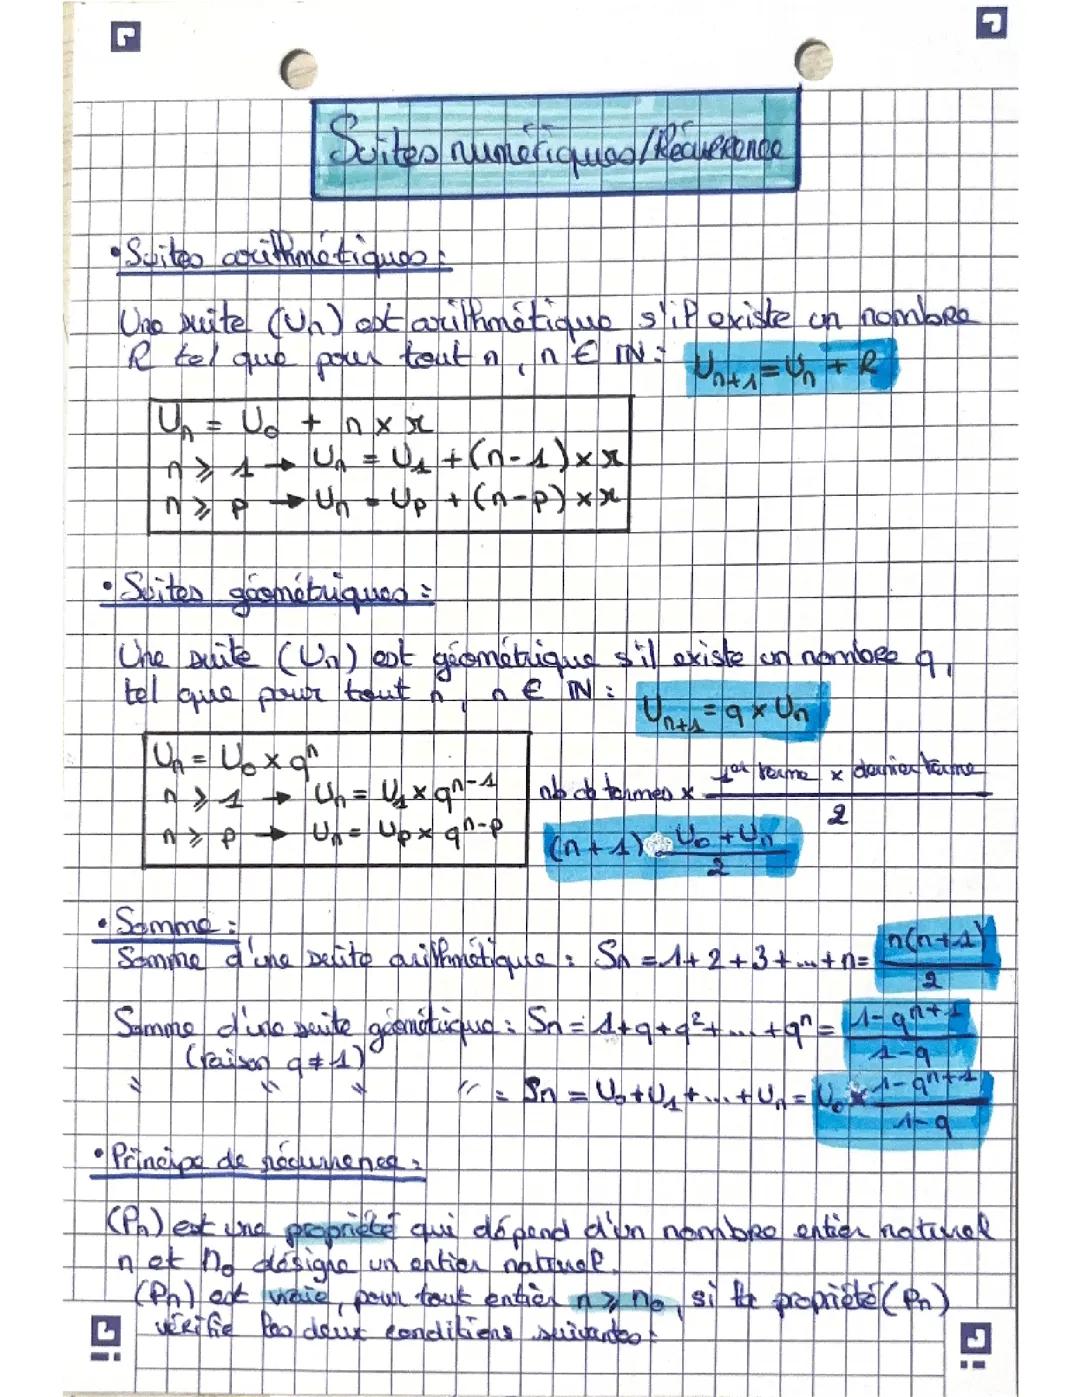 Suites numériques/Récurrence
• Suites arithmétiques :
Une suite (Un) est arithmétique s'il existe un nombre
R tel que pour tout n, n ∈ IN : Un+1 = Un + R
Un = U0 + n × r
n ⩾ 1 → Un = U1 + (n-1) × r
n ⩾ p → Un = Up + (n-p) × r
• Suites géométriques :
Une suite (Un) est géométrique s'il existe un nombre q,
tel que pour tout n, n ∈ IN : Un+1 = q × Un
Un = U0 × qⁿ
n ⩾ 1 → Un = U1 × qⁿ⁻¹
n ⩾ p → Un = Up × qⁿ⁻ᵖ
nb de termes × (1er terme × dernier terme)/2
(n+1) (U0 + Un)/2
• Somme :
Somme d'une suite arithmétique : Sn = 1+2+3+...+n = n(n+1)/2
Somme d'une suite géométrique : Sn = 1+q+q²+...+qⁿ = (1-qⁿ⁺¹)/(1-q)
(raison q ≠ 1)
" " " " : Sn = U0+U1+...+Un = U0 × (1-qⁿ⁺¹)/(1-q)
• Principe de récurrence :
(Pn) est une propriété qui dépend d'un nombre entier naturel
n et n0 désigne un entier naturel.
(Pn) est vraie, pour tout entier n ⩾ n0, si la propriété (Pn)
vérifie les deux conditions suivantes :